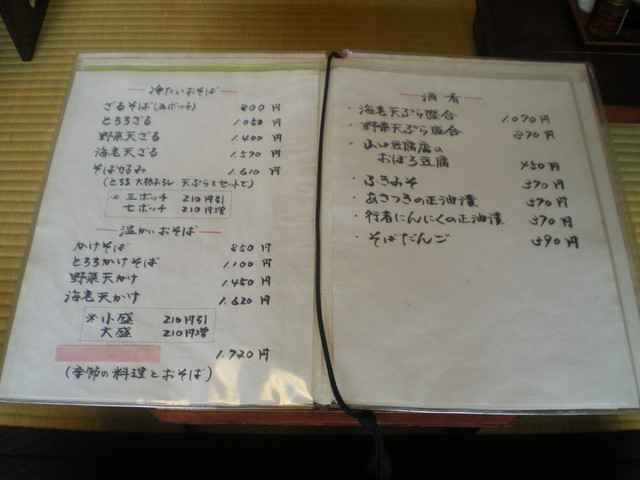 冷たいおそば
ざるそば(五ボッチ) 800円
とろろざる 1.050円
野菜天ざる 1.400円
海老天ざる 1.570円
そばがるみ 1.610円
(とろろ 大根おろし 天ぷらをセットで)
※ 三ボッチ 210円引
七ボッチ 210円増
温かいおそば
かけそば 850円
とろろかけそば 1.100円
野菜天かけ 1.450円
海老天かけ 1.620円
※小盛 210円引
大盛 210円増
1.720円
(季節の料理とおそば)
酒肴
・海老天ぷら盛合 1.070円
・野菜天ぷら盛合 870円
・山口豆腐店の
おぼろ豆腐 450円
・ふきみそ 370円
・あさつきの正油漬 370円
・行者にんにくの正油漬 370円
・そばだんご 390円